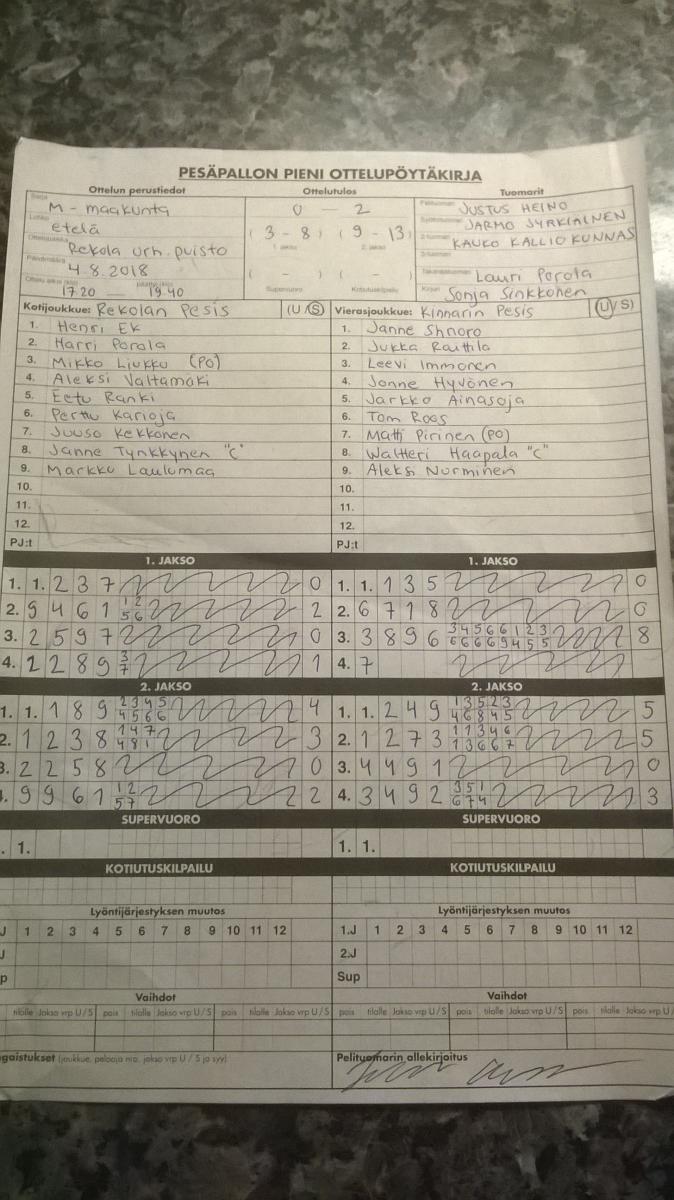 PESÄPALLON PIENI OTTELUPÖYTÄKIRJA
Ottelun perustiedot Ottelutulos Tuomarit
M-maakunta 0 - 2 JUSTUS HEINO
etelä (3-8) (9-13) JARMO JYRKIÄINEN
1. jakso 2. jakso
Rekola urh. puisto KAUKO KALLIOKUNNAS
4.8.2018 (-) (-) Lauri Porola
17.20 — 19.40 Supervuoro Kotiutuskilpailu Sonja Sinkkonen
Kotijoukkue: Rekolan Pesis (U/S) Vierasjoukkue: Kinnarin Pesis (U/S)
1. Henri Ek 1. Janne Shnoro
2. Harri Porola 2. Jukka Rauttila
3. Mikko Liukku (PO) 3. Leevi Immonen
4. Aleksi Valtamäki 4. Jonne Hyvönen
5. Eetu Ranki 5. Jarkko Ainasoja
6. Perttu Karioja 6. Tom Roos
7. Juuso Kekkonen 7. Matti Pirinen (PO)
8. Janne Tynkkynen "C" 8. Waltteri Haapala "C"
9. Markku Laulumaa 9. Aleksi Nurminen
10. 10.
11. 11.
12. 12.
PJ:t PJ:t
1. JAKSO 1. JAKSO
1. 1. 2 3 7 0 1. 1. 1 3 5 0
2. 9 4 6 1 1 2 2 2. 6 7 1 8 0
5 6
3. 2 5 9 7 0 3. 3 8 9 6 3 4 5 6 6 1 2 3 8
6 6 6 6 9 4 5 5
4. 1 2 8 9 3 1 4. 7
7
2. JAKSO 2. JAKSO
1. 1. 1 8 9 2 3 4 5 4 1. 1. 2 4 9 1 3 5 2 3 5
4 5 6 6 4 6 8 4 5
2. 1 2 3 8 1 4 7 3 2. 1 2 7 3 1 1 3 4 6 5
4 8 1 1 3 6 6 7
3. 2 2 5 8 0 3. 4 4 9 1 0
. 9 9 6 1 1 2 2 4. 3 4 9 2 3 5 1 3
5 7 6 7 4
SUPERVUORO SUPERVUORO
. 1. 1. 1.
KOTIUTUSKILPAILU KOTIUTUSKILPAILU
Lyöntijärjestyksen muutos Lyöntijärjestyksen muutos
J 1 2 3 4 5 6 7 8 9 10 11 12 1.J 1 2 3 4 5 6 7 8 9 10 11 12
J 2.J
p Sup
Vaihdot Vaihdot
tilalle Jakso vrp U/S pois tilalle Jakso vrp U/S pois tilalle Jakso vrp U/S pois tilalle Jakso vrp U/S pois tilalle Jakso vrp U/S pois tilalle Jakso vrp U/
gaistukset (joukkue, pelaaja nro, jakso vrp U / S ja syy) Pelituomarin allekirjoitus